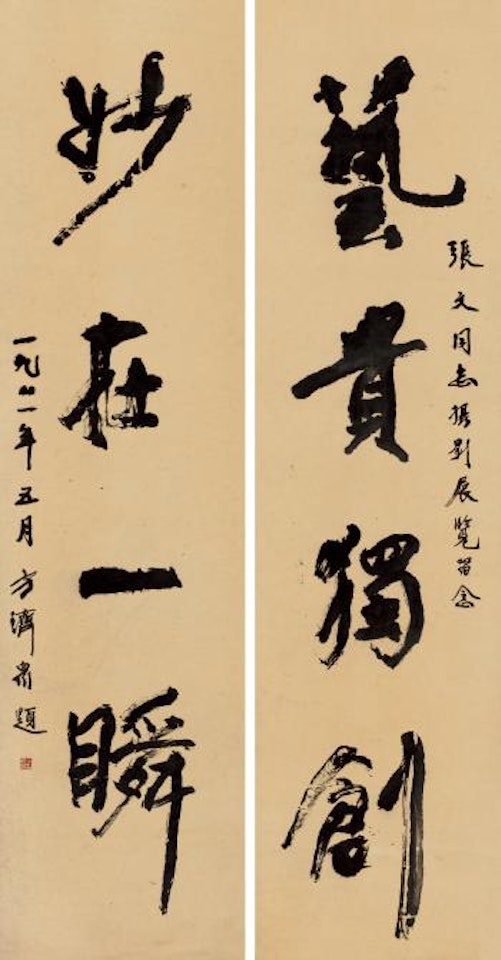 張文同志攝影展覽留念
藝貴獨創
妙在一瞬
一九八一年五月方濟眾題